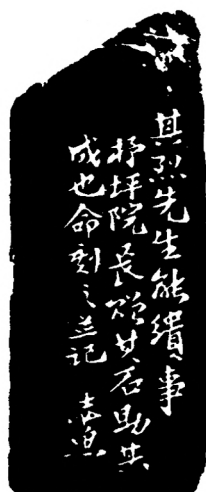 其烈先生能繢事
抒坪院長贈其石助其
成也命刻之並記 志逈